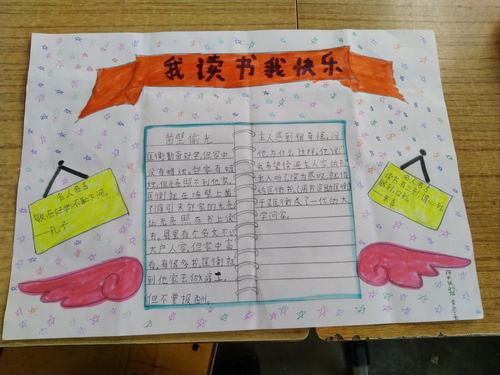 我读书我快乐
凿壁偷光
匡衡勤奋好学,但家中
没有蜡烛。邻家有蜡
烛,但光亮照不到他家,
匡衡就在墙壁上凿
了洞引来邻家的光亮
让光亮照在书上读
书。县里有个名文不识
大户人家,但家中富
有,有很多书,匡衡就
到他家去做雇工,
但不要报酬。
主人感到很奇怪,问
他为什么这样,他说:
主人听了,深为感叹,就借
给匡衡书。(用书资助匡衡)
于是匡衡成了一代的大
学问家。
名人名言
敏而好学,不耻下问。
—孔子
名人名言
读书有三到:
心到,眼到,口到。
—朱熹